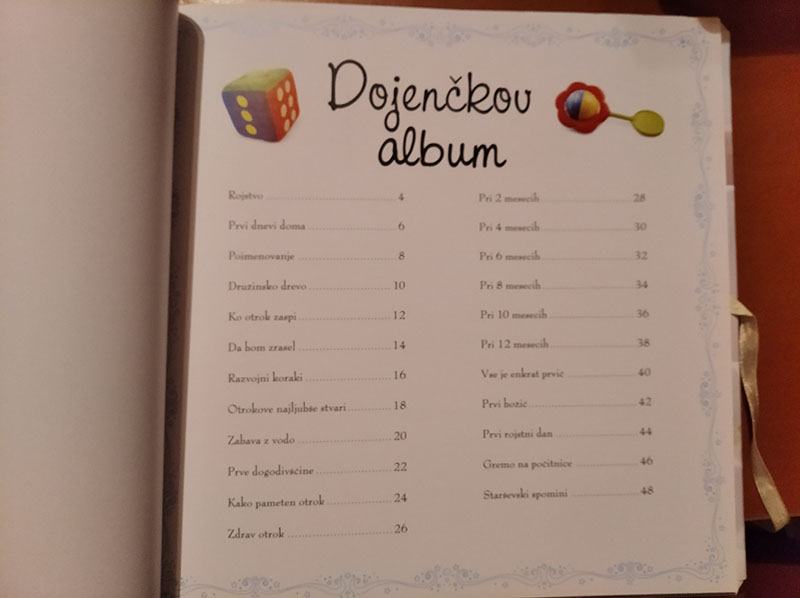 Dojenčkov
album
Rojstvo 4
Prvi dnevi doma 6
Poimenovanje 8
Družinsko drevo 10
Ko otrok zaspi 12
Da bom zrasel 14
Razvojni koraki 16
Otrokove najljubše stvari 18
Zabava z vodo 20
Prve dogodivščine 22
Kako pameten otrok 24
Zdrav otrok 26
Pri 2 mesecih 28
Pri 4 mesecih 30
Pri 6 mesecih 32
Pri 8 mesecih 34
Pri 10 mesecih 36
Pri 12 mesecih 38
Vse je enkrat prvič 40
Prvi božič 42
Prvi rojstni dan 44
Gremo na počitnice 46
Starševski spomini 48